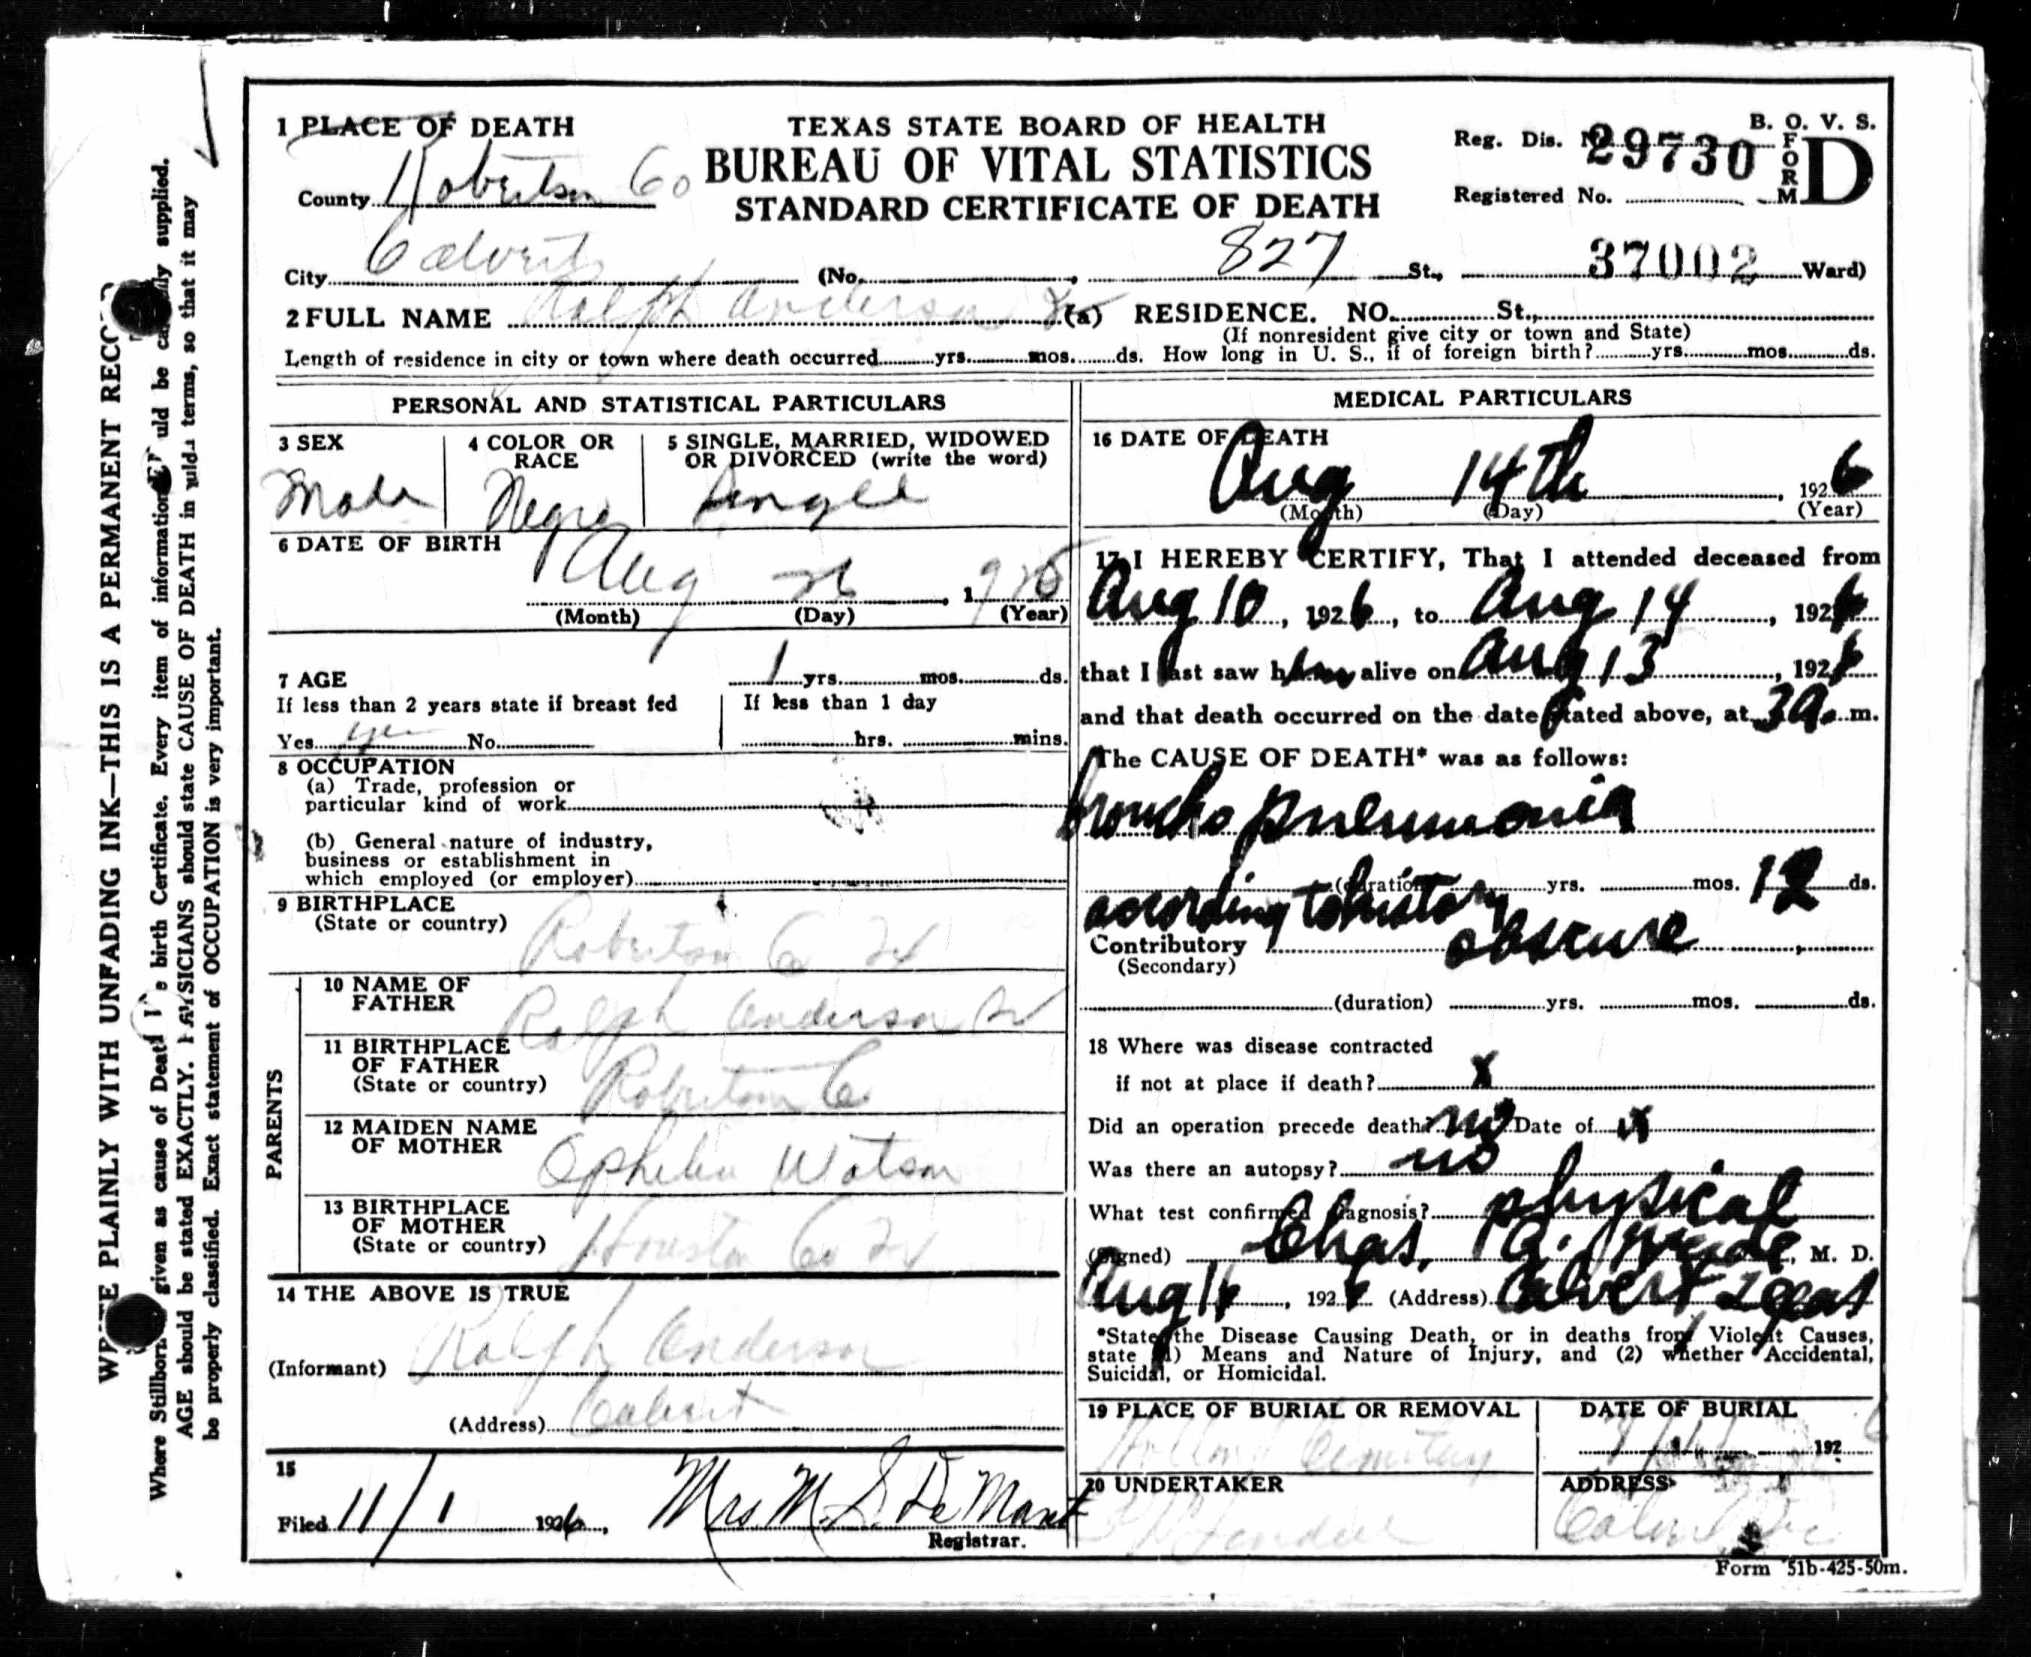 1 PLACE OF DEATH
County Robertson Co
City Calvert (No. , 827 St., 37002 Ward)
TEXAS STATE BOARD OF HEALTH
BUREAU OF VITAL STATISTICS
STANDARD CERTIFICATE OF DEATH
B. O. V. S.
FORM D
Reg. Dis. N 29730
Registered No.
2 FULL NAME Ralph Anderson (a) RESIDENCE. NO. St.,
(If nonresident give city or town and State)
Length of residence in city or town where death occurred yrs. mos. ds. How long in U. S., if of foreign birth? yrs. mos. ds.
PERSONAL AND STATISTICAL PARTICULARS
3 SEX
Male
4 COLOR OR RACE
Negro
5 SINGLE, MARRIED, WIDOWED
OR DIVORCED (write the word)
Single
6 DATE OF BIRTH
Aug 26, 1925
(Month) (Day) (Year)
7 AGE 1 yrs. mos. ds.
If less than 2 years state if breast fed
Yes yes No
If less than 1 day
hrs. mins.
8 OCCUPATION
(a) Trade, profession or
particular kind of work
(b) General nature of industry,
business or establishment in
which employed (or employer)
9 BIRTHPLACE
(State or country) Robertson Co Tx
PARENTS
10 NAME OF
FATHER Ralph Anderson Sr
11 BIRTHPLACE
OF FATHER
(State or country) Robertson Co
12 MAIDEN NAME
OF MOTHER Ophelia Watson
13 BIRTHPLACE
OF MOTHER
(State or country) Houston Co Tx
14 THE ABOVE IS TRUE
(Informant) Ralph Anderson
(Address) Calvert
15
Filed 11/1 1926, Mrs. M. S. De Mont
Registrar.
MEDICAL PARTICULARS
16 DATE OF DEATH
Aug 14th, 1926
(Month) (Day) (Year)
17 I HEREBY CERTIFY, That I attended deceased from
Aug 10, 1926, to Aug 14, 1926
that I last saw him alive on Aug 13, 1926
and that death occurred on the date stated above, at 3 a. m.
The CAUSE OF DEATH* was as follows:
broncho pneumonia
(duration) yrs. mos. 12 ds.
according to history
Contributory obscure
(Secondary)
(duration) yrs. mos. ds.
18 Where was disease contracted
if not at place if death? x
Did an operation precede death? no Date of x
Was there an autopsy? no
What test confirmed diagnosis? physical
(Signed) Chas. , M. D.
Aug 16, 1926 (Address) Calvert Texas
*State the Disease Causing Death, or in deaths from Violent Causes,
state (1) Means and Nature of Injury, and (2) whether Accidental,
Suicidal, or Homicidal.
19 PLACE OF BURIAL OR REMOVAL
Cemetery
DATE OF BURIAL
192
20 UNDERTAKER
ADDRESS
Form 51b-425-50m.
WRITE PLAINLY WITH UNFADING INK—THIS IS A PERMANENT RECO
Where Stillborn given as cause of Death birth Certificate. Every item of information uld be ca supplied.
AGE should be stated EXACTLY. PHYSICIANS should state CAUSE OF DEATH in terms, so that it may
be properly classified. Exact statement of OCCUPATION is very important.